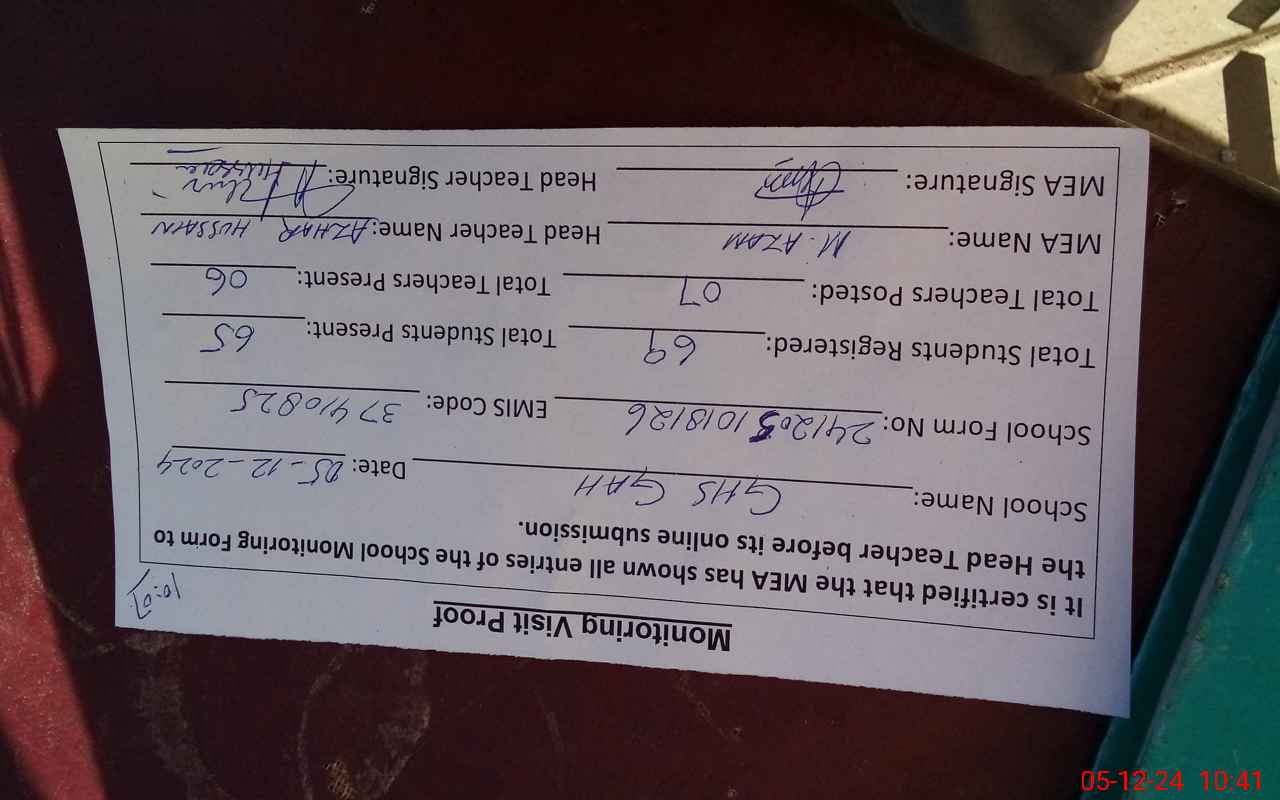 Monitoring Visit Proof
10:07
It is certified that the MEA has shown all entries of the School Monitoring Form to
the Head Teacher before its online submission.
School Name: GHS GAH Date: 05-12-2024
School Form No: 2412051018126 EMIS Code: 37410825
Total Students Registered: 69 Total Students Present: 65
Total Teachers Posted: 07 Total Teachers Present: 06
MEA Name: M. AZAM Head Teacher Name: AZHAR HUSSAIN
MEA Signature: Head Teacher Signature: Azhar Hussain
05-12-24 10:41